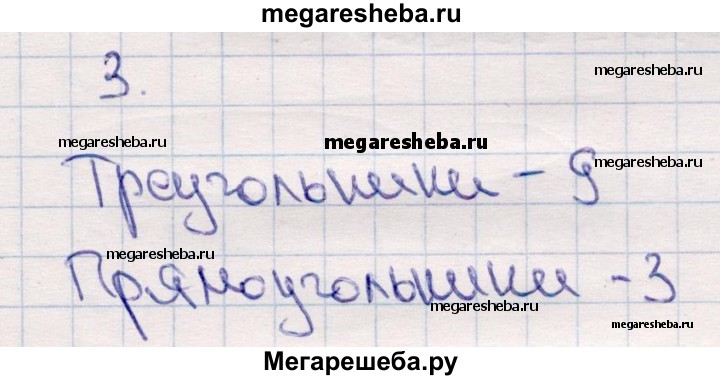 megaresheba.ru
3.
megaresheba.ru
megaresheba.ru
megaresheba.ru
Треугольники - 9
megaresheba.ru
megaresheba.ru
Прямоугольники - 3
megaresheba.ru
Мегарешеба.ру